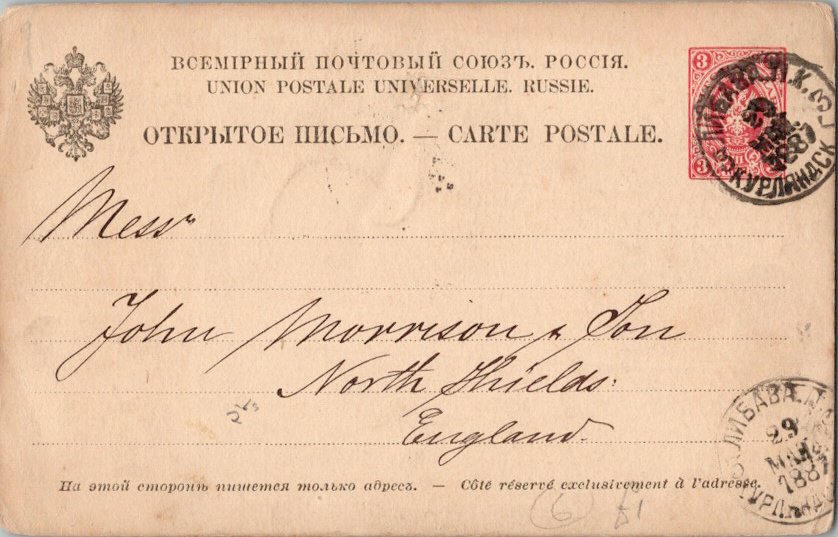 ВСЕМІРНЫЙ ПОЧТОВЫЙ СОЮЗЪ. РОССІЯ.
UNION POSTALE UNIVERSELLE. RUSSIE.
ОТКРЫТОЕ ПИСЬМО. — CARTE POSTALE.
3
3
ЛИБАВА
КУРЛЯНДСК
1887
Messrs
John Morrison & Son
North Shields:
England.
ЛИБАВА
29
МАЙ
1887
На этой сторонѣ пишется только адресъ. — Côté réservé exclusivement à l'adresse.
6